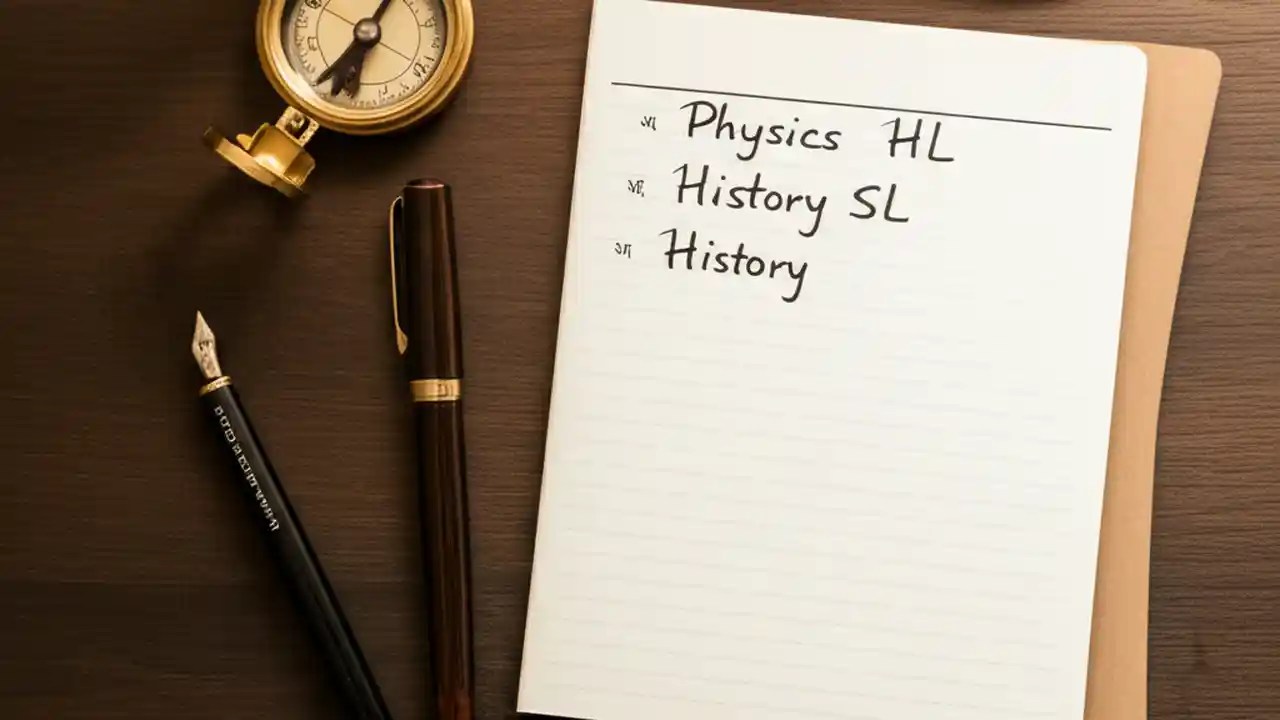 Physics HL
History SL
History